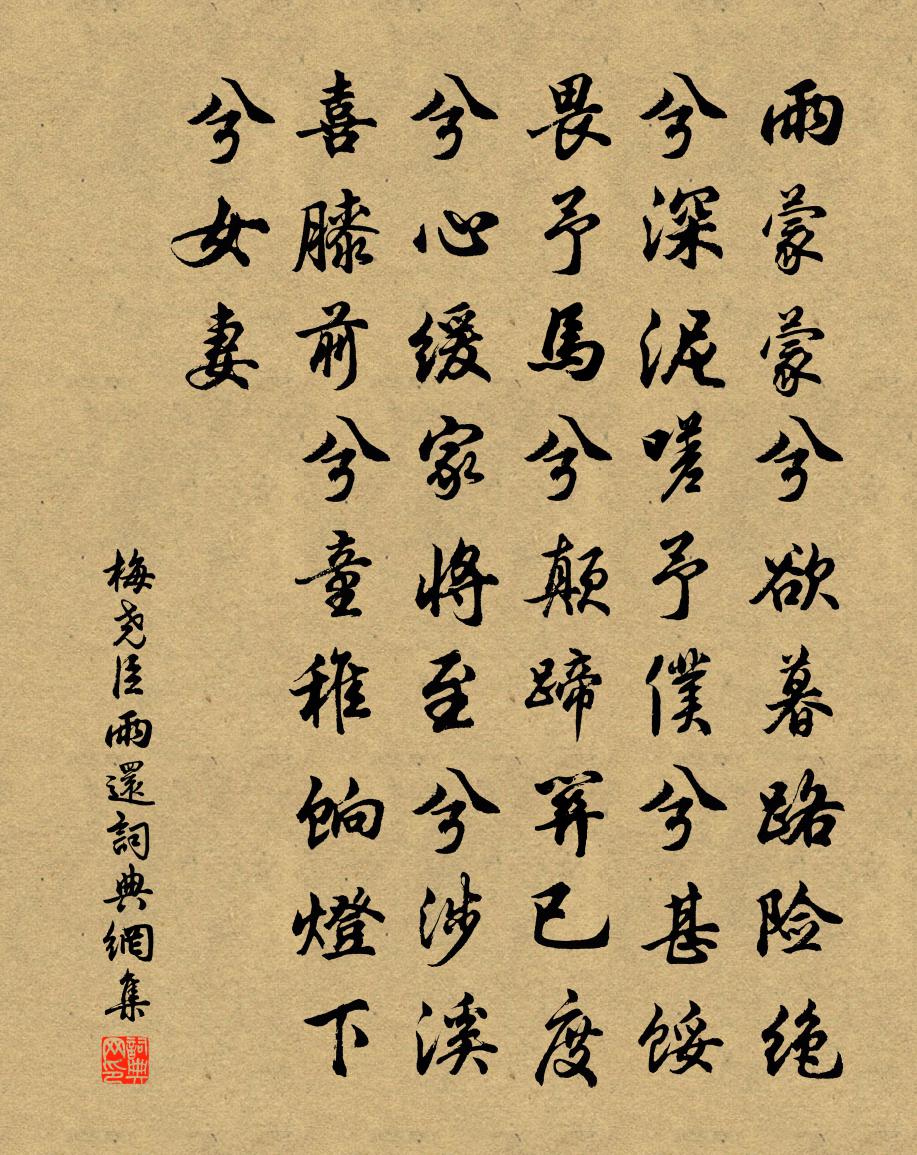 雨蒙蒙兮欲暮路险绝
兮深泥嗟予僕兮甚馁
畏予馬兮颠蹄羿已度
兮心缓家将至兮涉溪
喜膝前兮童稚饷燈下
兮女妻
梅尧臣雨還詞典網集
詞典网印